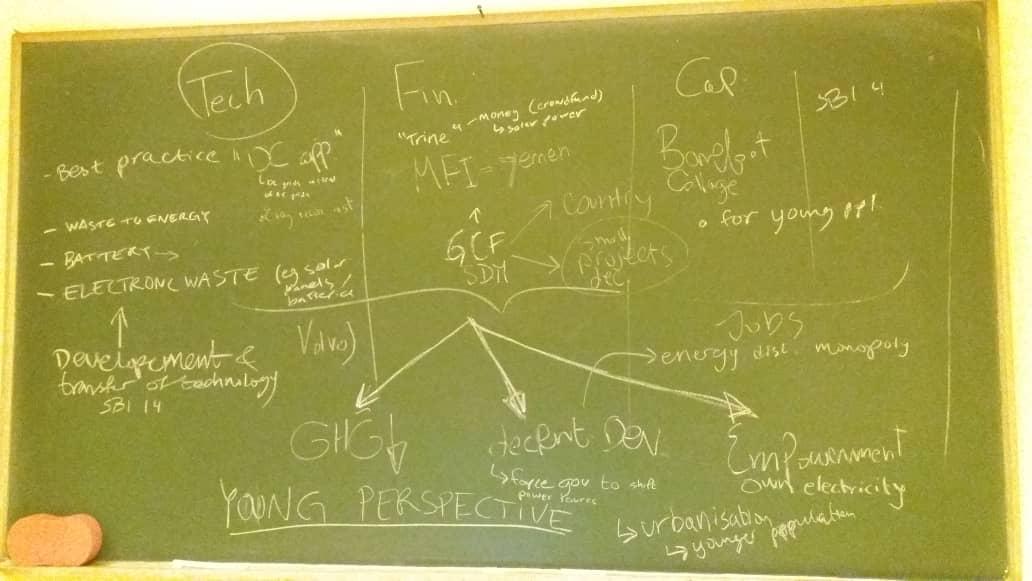 Tech
- Best practice "DC app"
- WASTE TO ENERGY
- BATTERY →
- ELECTRONC WASTE (eg solar
panels,
batteries
Developement &
transfer of technology
SBI 14
Fin.
"Trine" - money (crowdfund)
↳ solar power
MFI = Yemen
GCF
SDM
Country
small
projects
dec.
Cap
Barefoot
College
• for young ppl.
SBI 4
Volvo)
Jobs
energy dist. monopoly
GHG ↓
decent. Dev
↳ force gov to shift
power
Empowernment
own electricity
↳ urbanisation
↳ younger population
YOUNG PERSPECTIVE